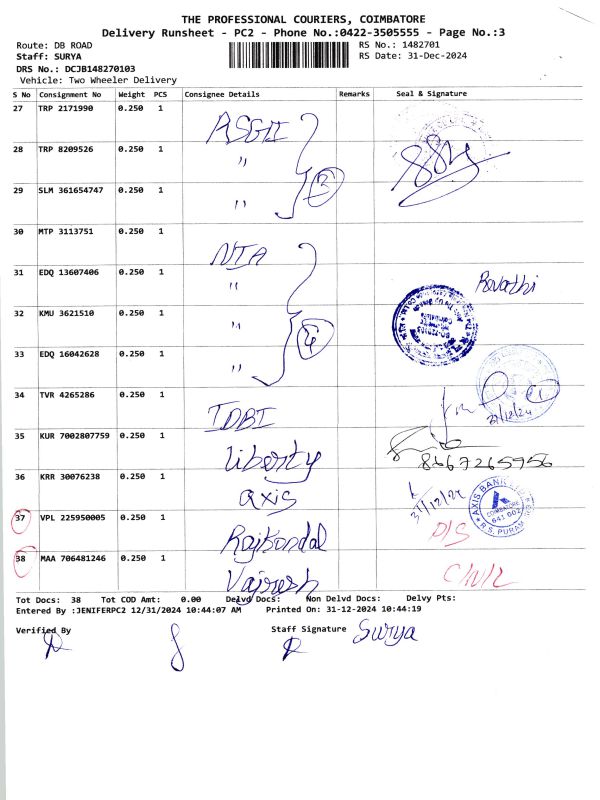 THE PROFESSIONAL COURIERS, COIMBATORE
Delivery Runsheet - PC2 - Phone No.:0422-3505555 - Page No.:3
Route: DB ROAD
RS No.: 1482701
Staff: SURYA
RS Date: 31-Dec-2024
DRS No.: DCJB148270103
Vehicle: Two Wheeler Delivery
S No Consignment No Weight PCS Consignee Details Remarks Seal & Signature
27 TRP 2171990 0.250 1 ASGI
28 TRP 8209526 0.250 1 "
29 SLM 361654747 0.250 1 " 3
30 MTP 3113751 0.250 1 NIA
31 EDQ 13607406 0.250 1 " Revathi
32 KMU 3621510 0.250 1 " 4
33 EDQ 16042628 0.250 1 "
34 TVR 4265286 0.250 1 IDBI 31/12/24 1
35 KUR 7002807759 0.250 1 liberty 8667265956
36 KRR 30076238 0.250 1 axis 31/12/24
AXIS BANK
COIMBATORE
641 002
R.S. PURAM
37 VPL 225950005 0.250 1 D/S
38 MAA 706481246 0.250 1 Vajresh
Tot Docs: 38 Tot COD Amt: 0.00 Delvd Docs: Non Delvd Docs: Delvy Pts:
Entered By :JENIFERPC2 12/31/2024 10:44:07 AM Printed On: 31-12-2024 10:44:19
Verified By
Staff Signature Surya